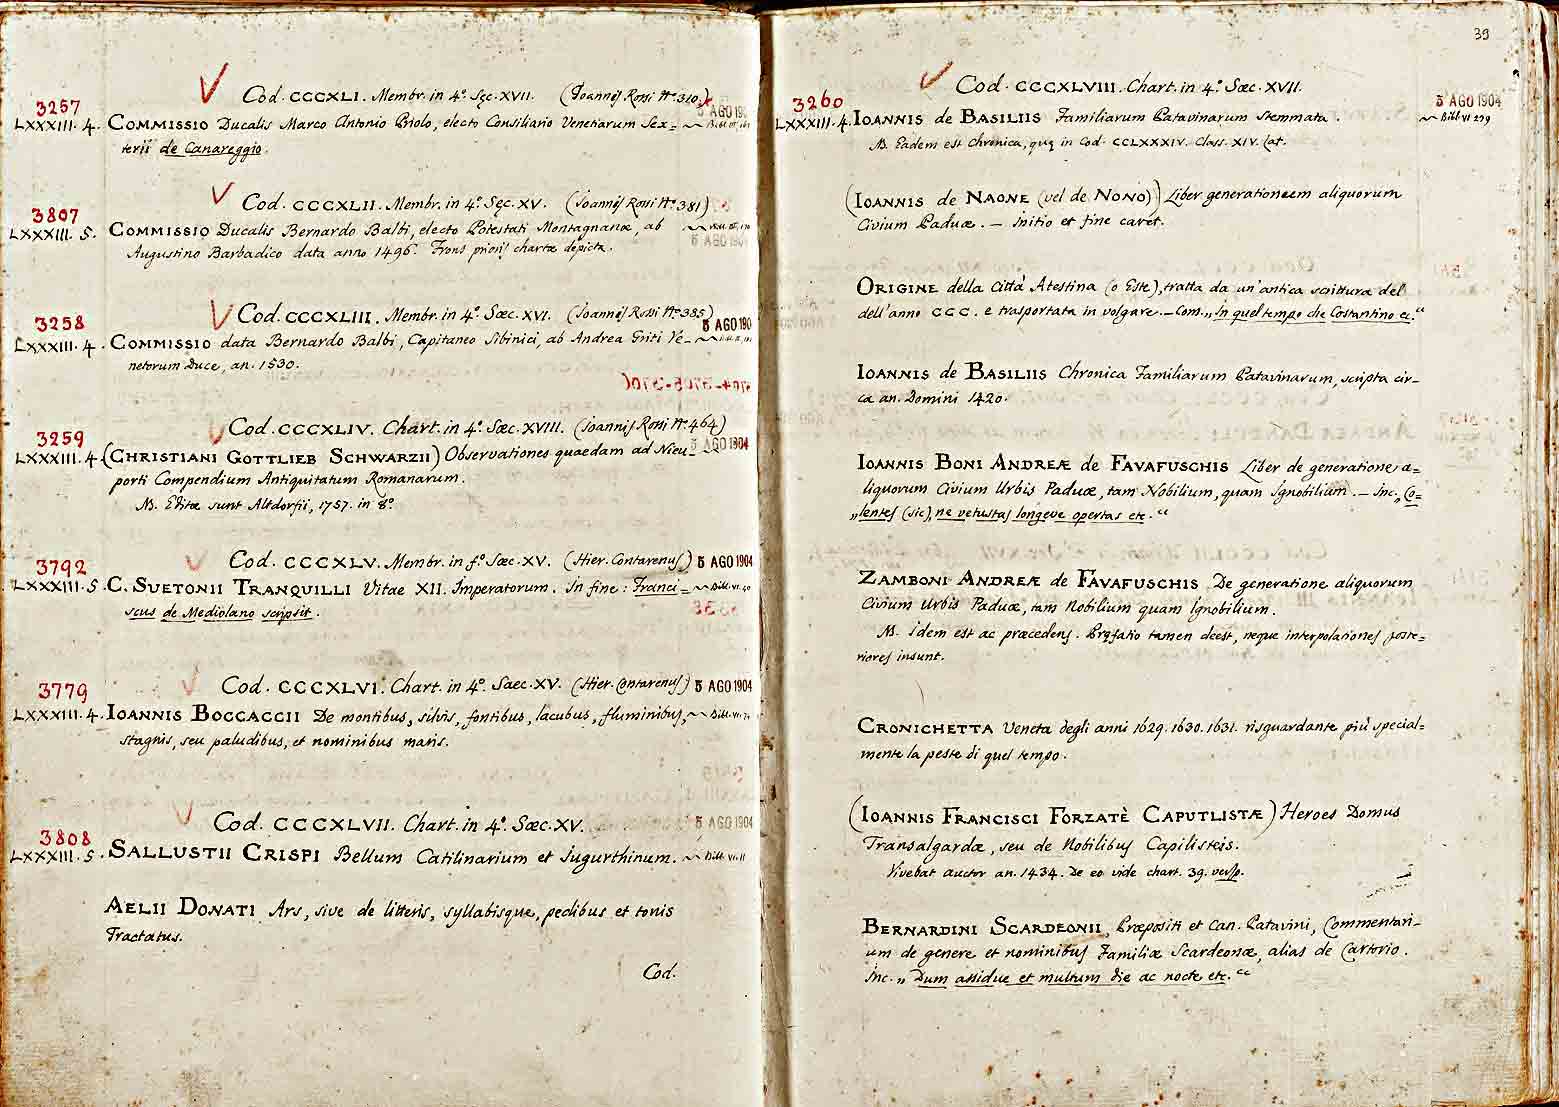 Cod. CCCXLI. Membr. in 4º. Sęc. XVII. (Joannis Rossi Nº. 310.)
3257
5 AGO 190
LXXXIII. 4. COMMISSIO Ducalis Marco Antonio Priolo, electo Consiliario Venetiarum Sex=
terii de Canareggio.
Cod. CCCXLII. Membr. in 4º. Sęc. XV. (Joannis Rossi Nº. 381)
3807
LXXXIII. 5. COMMISSIO Ducalis Bernardo Balbi, electo Potestati Montagnanæ, ab
5 AGO 190
Augustino Barbadico data anno 1496. Frons prioris chartæ depicta.
Cod. CCCXLIII. Membr. in 4º. Sæc. XVI. (Joannis Rossi Nº. 385)
3258
5 AGO 190
LXXXIII. 4. COMMISSIO data Bernardo Balbi, Capitaneo Sibinici, ab Andrea Griti Ve=
netorum Duce, an. 1530.
Cod. CCCXLIV. Chart. in 4º. Sæc. XVIII. (Joannis Rossi Nº. 464)
3259
5 AGO 1904
LXXXIII. 4. (CHRISTIANI GOTTLIEB SCHWARZII) Observationes quaedam ad Nieu=
porti Compendium Antiquitatum Romanarum.
NB. Editæ sunt Altdorfii, 1757. in 8º.
Cod. CCCXLV. Membr. in fº. Sæc. XV. (Hier. Contarenus)
3792
5 AGO 1904
LXXXIII. 5. C. SUETONII TRANQUILLI Vitae XII. Imperatorum. In fine: Franci=
scus de Mediolano scripsit.
Cod. CCCXLVI. Chart. in 4º. Saec. XV. (Hier. Contarenus)
3779
5 AGO 1904
LXXXIII. 4. IOANNIS BOCCACCII De montibus, silvis, fontibus, lacubus, fluminibus,
stagnis, seu paludibus, et nominibus maris.
Cod. CCCXLVII. Chart. in 4º. Sæc. XV.
3808
5 AGO 1904
LXXXIII. 5. SALLUSTII CRISPI Bellum Catilinarium et Jugurthinum.
AELII DONATI Ars, sive de litteris, syllabisque, pedibus et tonis
Tractatus.
Cod.
39
Cod. CCCXLVIII. Chart. in 4º. Sæc. XVII.
3260
5 AGO 1904
LXXXIII. 4. IOANNIS de BASILIIS Familiarum Patavinarum stemmata. Bibl. VI 279
NB. Eadem est Chronica, quę in Cod. CCLXXXIV. Class. XIV. Lat.
(IOANNIS de NAONE (vel de NONO)) Liber generationum aliquorum
Civium Paduæ. — Initio et fine caret.
ORIGINE della Città Atestina (o Este), tratta da un'antica scrittura del
dell'anno CCC. e trasportata in volgare. — Com. „In quel tempo che Costantino ec.“
IOANNIS de BASILIIS Chronica Familiarum Patavinarum, scripta cir-
ca an. Domini 1420.
IOANNIS BONI ANDREÆ de FAVAFUSCHIS Liber de generatione a=
liquorum Civium Urbis Paduæ, tam Nobilium, quam Ignobilium. — Inc. „Co=
„lentes (sic), ne vetustas longeve opertas etc.“
ZAMBONI ANDREÆ de FAVAFUSCHIS De generatione aliquorum
Civium Urbis Paduæ, tam Nobilium quam Ignobilium.
NB. Idem est ac præcedens. Pręfatio tamen deest, neque interpolationes poste=
riores insunt.
CRONICHETTA Veneta degli anni 1629. 1630. 1631. risguardante più special=
mente la peste di quel tempo.
(IOANNIS FRANCISCI FORZATÈ CAPUTLISTÆ) Heroes Domus
Transalgardæ, seu de Nobilibus Capilisteis.
Vivebat auctor an. 1434. De eo vide chart. 39. verso.
BERNARDINI SCARDEONII, Præpositi et Can. Patavini, Commentari-
um de genere et nominibus Familiæ Scardeonæ, alias de Cartorio.
Inc. „ Dum assidue et multum die ac nocte etc.“